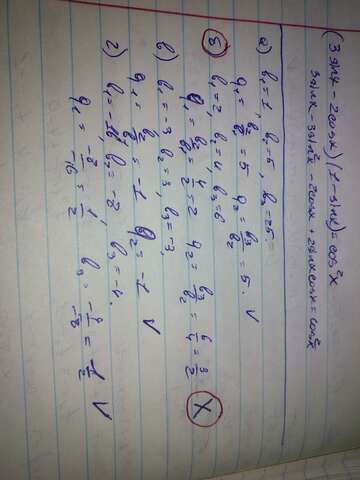 (3 sinx - 2cosx) (1 - sinx) = cos²x
3sinx - 3sin²x - 2cosx + 2sinxcosx = cos²x
а) b₁=1, b₂=5, b₃=25.
q₁ = b₂/b₁ = 5 q₂ = b₃/b₂ = 5. V
б) b₁=2, b₂=4, b₃=6
q₁ = b₂/b₁ = 4/2 = 2 q₂ = b₃/b₂ = 6/4 = 3/2 X
в) b₁=-3 b₂=3, b₃=-3,
q₁ = b₂/b₁ = -1 q₂ = -1 V
г) b₁=-16, b₂=-8 b₃=-4.
q₁ = -8/-16 = 1/2 b₃: -4/-8 = 1/2 V